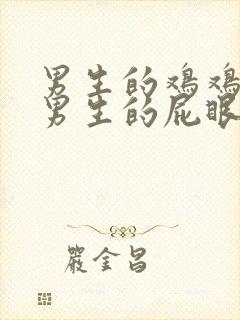 男生的鸡鸡
男生的屁眼
嚴金昌